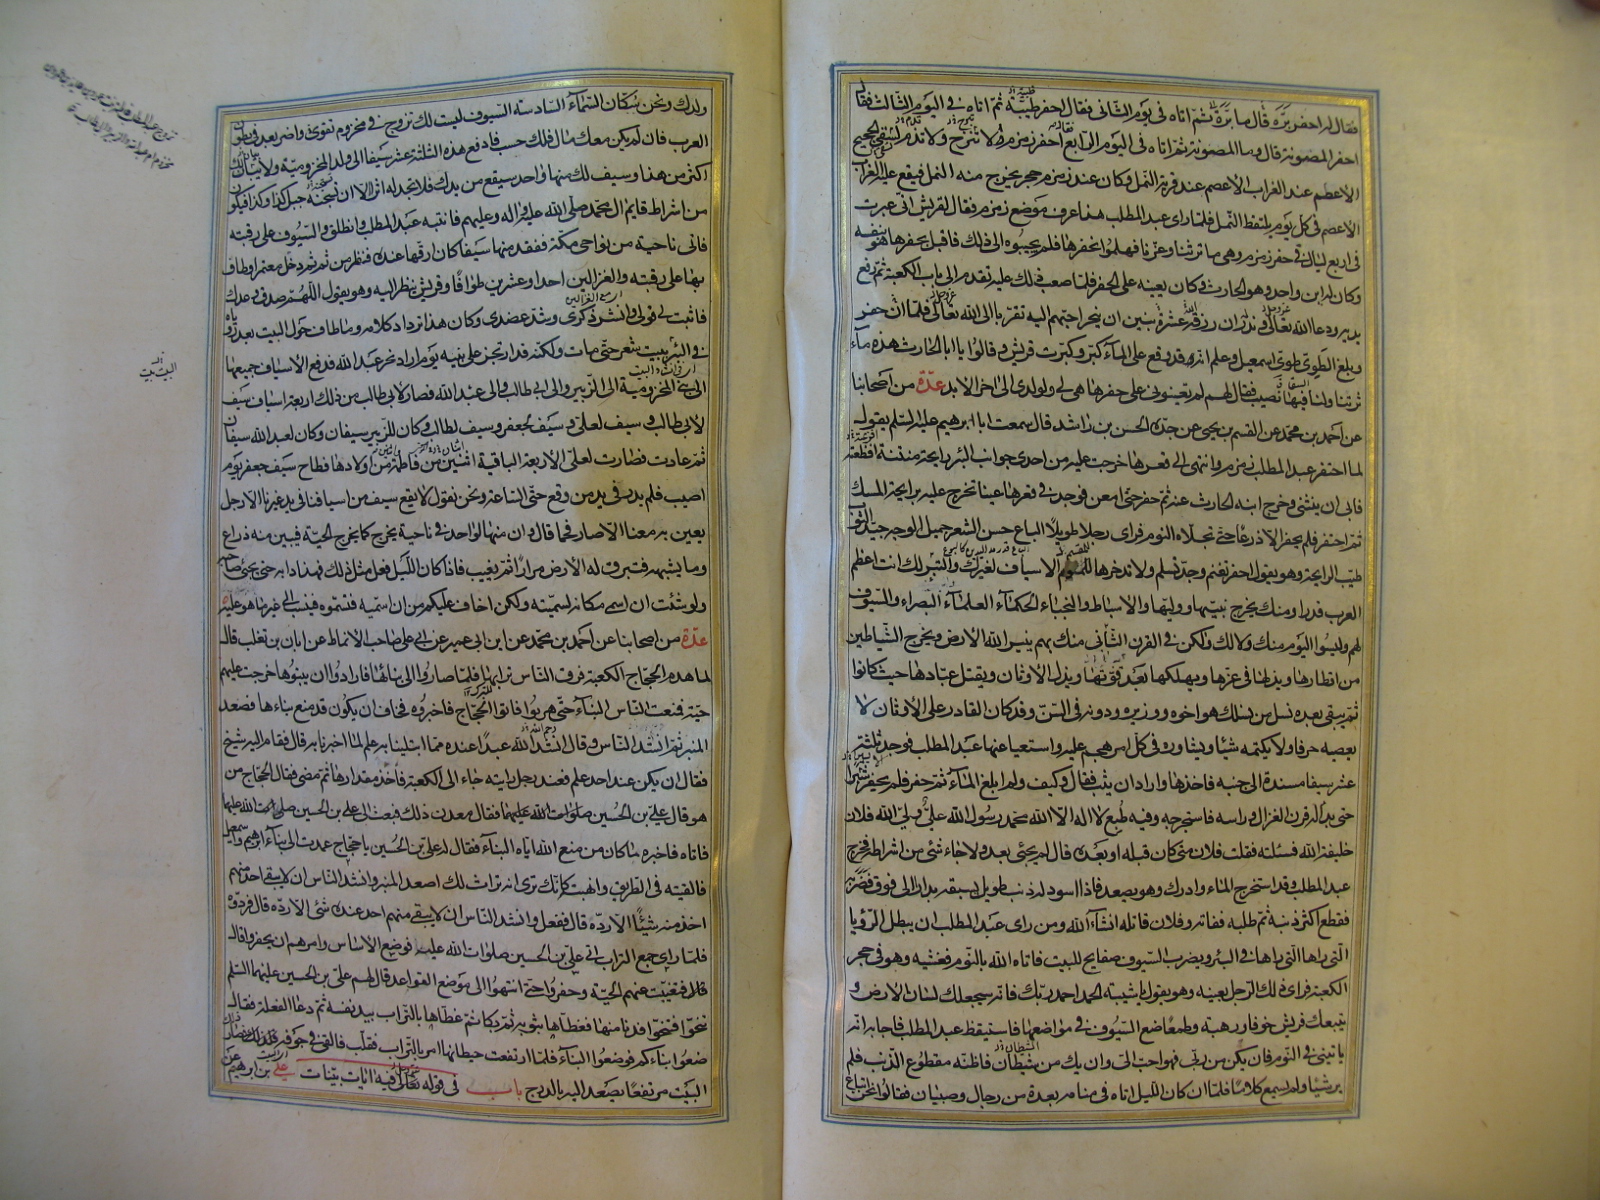 فقال له احفر برة قال وما برة ثم اتاه فى يوم الثانى فقال احفر طيبة ثم اتاه فى اليوم الثالث فقال
احفر المصونة قال وما المصونة ثم اتاه فى اليوم الرابع فقال احفر زمزم لا تنزح ولا تذم لسقى الحجيج
الاعظم عند الغراب الاعصم عند قرية النمل وكان عند زمزم حجر يخرج منه النمل فيقع عليه الغراب
الاعصم فى كل يوم يلتقط النمل فلما راى عبد المطلب هذا عرف موضع زمزم فقال لقريش انى عبرت
فى اربع ليال فى حفر زمزم وهى ماثرتنا وعزنا فهلموا نحفرها فلم يجيبوه الى ذلك فاقبل يحفرها هو بنفسه
وكان له ابن واحد وهو الحارث وكان يعينه على الحفر فلما صعب ذلك عليه تقدم الى باب الكعبة ثم رفع
يديه ودعا الله تعالى ونذر له ان رزقه عشرة بنين ان ينحر احبهم اليه تقربا الى الله تعالى فلما ان حفر
وبلغ الطوى طوى اسمعيل وعلم انه قد وقع على الماء كبر وكبرت قريش وقالوا يا ابا الحارث هذه ماثرتنا
ولنا فيها نصيب فقال لهم لم تعينونى على حفرها هى لى ولولدى الى اخر الابد عدة من اصحابنا
عن احمد بن محمد عن القسم بن يحيى عن جده الحسن بن راشد قال سمعت ابا ابرهيم عليه السلم يقول
لما احتفر عبد المطلب زمزم وانتهى الى قعرها خرجت عليه من احدى جوانب البئر رائحة منتنة افظعته
فابى ان ينثنى وخرج ابنه الحارث عنه ثم حفر حتى امعن فوجد فى قعرها عينا تخرج عليه برائحة المسك
ثم احتفر فلم يحفر الا ذراعا حتى تجلاه النوم فراى رجلا طويل الباع حسن الشعر جميل الوجه جيد الثوب
طيب الرائحة وهو يقول احفر تغنم وجد تسلم ولا تدخرها للمقسم الاسياف لغيرك والبئر لك انت اعظم
العرب قدرا ومنك يخرج نبيها ووليها والاسباط والنجباء الحكماء العلماء البصراء والسيوف
لهم وليسوا اليوم منك ولا لك ولكن فى القرن الثانى منك بهم ينير الله الارض ويخرج الشياطين
من اقطارها ويذلها فى عزها ويهلكها بعد قوتها ويذل الاوثان ويقتل عبادها حيث كانوا
ثم يبقى بعده نسل من نسلك هو اخوه ووزيره ودونه فى السن وقد كان القادر على الاوثان لا
يعصيه حرفا ولا يكتمه شيئا ويشاوره فى كل امر هجم عليه واستعيا عنها عبد المطلب فوجد ثلثة
عشر سيفا مسندة الى جنبه فاخذها واراد ان يثب فقال وكيف ولم ابلغ الماء ثم حفر فلم يحفر شبرا
حتى بدا له قرن الغزال وراسه فاستخرجه وفيه طبع لا اله الا الله محمد رسول الله على ولى الله فلان
خليفة الله فسئلته فقلت فلان متى كان قبله او بعده قال لم يجئ بعد ولا جاء شئ من اشراطه فخرج
عبد المطلب وقد استخرج الماء وادرك وهو يصعد فاذا اسود له ذنب طويل يسبقه بدارا الى فوق فضربه
فقطع اكثر ذنبه ثم طلبه ففاته وفلان قاتله انشاء الله ومن راى عبد المطلب ان يبطل الرؤيا
التى راها فى البئر ويضرب السيوف صفايح للبيت فاتاه الله بالنوم فغشيه وهو فى حجر
الكعبة فراى ذلك الرجل بعينه وهو يقول يا شيبة الحمد احمد ربك فانه سيجعلك لسان الارض و
يتبعك قريش خوفا ورهبة وطمعا ضع السيوف فى مواضعها فاستيقظ عبد المطلب فاجابه انه
ياتينى فى النوم فان يكن من ربى فهو احب الى وان يك من شيطان فاظنه مقطوع الذنب فلم
ير شيئا ولم يسمع كلاما فلما ان كان الليل اتاه فى منامه بعدة من رجال وصبيان فقالوا نحن اتباع
ولدك ونحن سكان السماء السادسة السيوف ليست لك تزوج فى مخزوم تقوى واضرب بعد فى بطون
العرب فان لم يكن معك مال فلك حسب فادفع هذه الثلثة عشر سيفا الى ولد المخزومية ولا يبان لك
اكثر من هذا وسيف لك منها واحد سيقع من يدك فلا تجد له اثرا الا ان يسجنه جبل كذا وكذا فيكون
من اشراط قايم ال محمد صلى الله عليه واله وعليهم فانتبه عبد المطلب وانطلق والسيوف على رقبته
فاتى ناحية من نواحى مكة ففقد منها سيفا كان ارقها عنده فنظر من ثم ثم دخل معتمرا وطاف
بها على رقبته والغزالين احدا وعشرين طوافا وقريش ينظر اليه وهو يقول اللهم صدق وعدك
فاثبت لى قولى وانشر ذكرى وشد عضدى وكان هذا ترداد كلامه وما طاف حول البيت بعد رؤياه
فى البئر ببيت شعر حتى مات ولكنه قد ارتجز على بنيه يوم اراد نحر عبد الله فدفع الاسياف جميعها
الى بنى المخزومية الى الزبير والى ابى طالب والى عبد الله فصار لابى طالب من ذلك اربعة اسياف سيف
لابى طالب وسيف لعلى وسيف لجعفر وسيف لطالب وكان للزبير سيفان وكان لعبد الله سيفان
ثم عادت فصارت لعلى الاربعة الباقية اثنين من فاطمة واثنين من اولادها فطاح سيف جعفر يوم
اصيب فلم يدر فى يد من وقع حتى الساعة ونحن نقول لا يقع سيف من اسيافنا فى يد غيرنا الا رجل
يعين به معنا الا صار فحما قال وان منها لواحد فى ناحية يخرج كما يخرج الحية فيبين منه ذراع
وما يشبهه فتبرق له الارض مرارا ثم يغيب فاذا كان الليل فعل مثل ذلك فهذا دابه حتى يجئ صاحبه
ولو شئت ان اسمى مكانه لسميته ولكن اخاف عليكم من ان اسميه فتسموه فينسب الى غير ما هو عليه
عدة من اصحابنا عن احمد بن محمد عن ابن ابى عمير عن ابى على صاحب الانماط عن ابان بن تغلب قال
لما هدم الحجاج الكعبة فرق الناس ترابها فلما صاروا الى بنائها فارادوا ان يبنوها خرجت عليهم
حية فمنعت الناس البناء حتى هربوا فاتوا الحجاج فاخبروه فخاف ان يكون قد منع بناءها فصعد
المنبر ثم انشد الناس وقال انشد الله عبدا عنده مما ابتلينا به علم لما اخبرنا به قال فقام اليه شيخ
فقال ان يكن عند احد علم فعند رجل رايته جاء الى الكعبة فاخذ مقدارها ثم مضى فقال الحجاج من
هو قال على بن الحسين صلوات الله عليهما فقال معدن ذلك فبعث الى على بن الحسين صلوات الله عليهما
فاتاه فاخبره ما كان من منع الله اياه البناء فقال له على بن الحسين يا حجاج عمدت الى بناء ابرهيم واسمعيل
فالقيته فى الطريق وانهبته كانك ترى انه تراث لك اصعد المنبر وانشد الناس ان لا يبقى احد منهم
اخذ منه شيئا الا رده قال ففعل وانشد الناس ان لا يبقى منهم احد عنده شئ الا رده قال فردوه
فلما راى جمع التراب اتى على بن الحسين صلوات الله عليه فوضع الاساس وامرهم ان يحفروا قال
فتغيبت عنهم الحية وحفروا حتى انتهوا الى موضع القواعد قال لهم على بن الحسين عليهما السلم
تنحوا فتنحوا فدنا منها فغطاها بثوبه ثم بكا ثم غطاها بالتراب بيد نفسه ثم دعا الفعلة فقال
ضعوا بناءكم فوضعوا البناء فلما ارتفعت حيطانها امر بالتراب فقلب فالقى فى جوفه فلذلك صار
البيت مرتفعا يصعد اليه بالدرج باب فى قوله تعالى فيه ايات بينات على بن ابرهيم عن